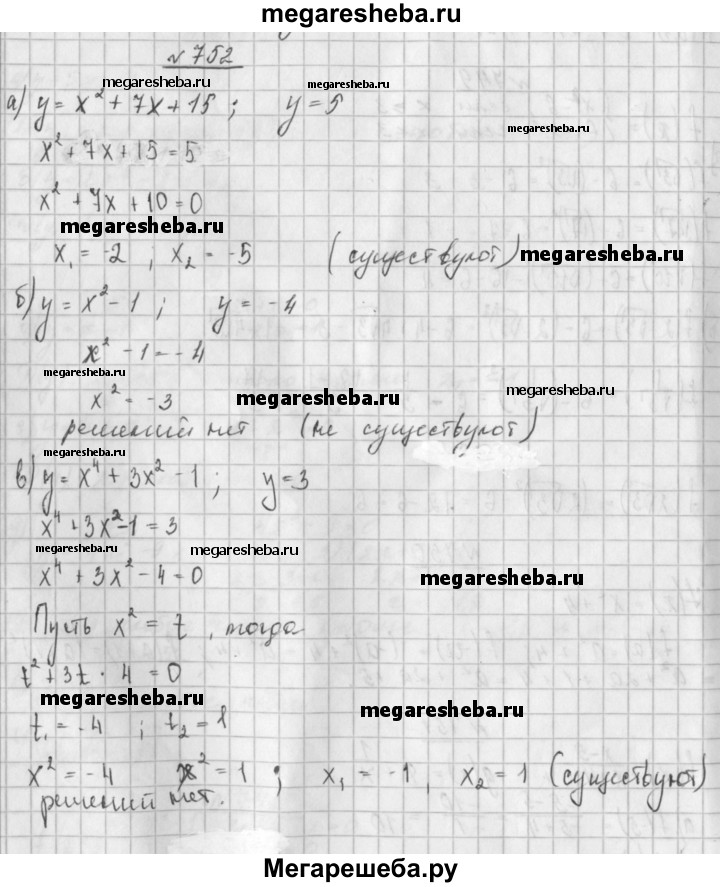 megaresheba.ru
№ 752
megaresheba.ru megaresheba.ru
а) y = x² + 7x + 15 ; y = 5
megaresheba.ru
x² + 7x + 15 = 5
x² + 7x + 10 = 0
megaresheba.ru
x₁ = -2 , x₂ = -5 (существуют) megaresheba.ru
б) y = x² - 1 ; y = -4
x² - 1 = -4
megaresheba.ru
x² = -3 megaresheba.ru megaresheba.ru
решений нет (не существуют)
megaresheba.ru
в) y = x⁴ + 3x² - 1 ; y = 3
x⁴ + 3x² - 1 = 3
megaresheba.ru megaresheba.ru
x⁴ + 3x² - 4 = 0 megaresheba.ru
Пусть x² = t , тогда
t² + 3t · 4 = 0
megaresheba.ru megaresheba.ru
t₁ = -4 ; t₂ = 1
x² = -4 x² = 1 ; x₁ = -1, x₂ = 1 (существуют)
решений нет.
megaresheba.ru megaresheba.ru
Мегарешеба.ру